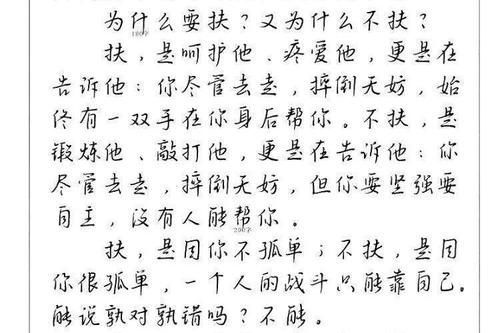 为什么要扶？又为什么不扶？
扶，是呵护他、疼爱他，更是在
告诉他：你尽管去走，摔倒无妨，始
终有一双手在你身后帮你。不扶，是
锻炼他、敲打他，更是在告诉他：你
尽管去走，摔倒无妨，但你要坚强要
自主，没有人能帮你。
200字
扶，是因你不孤单；不扶，是因
你很孤单，一个人的战斗只能靠自己。
能说孰对孰错吗？不能。